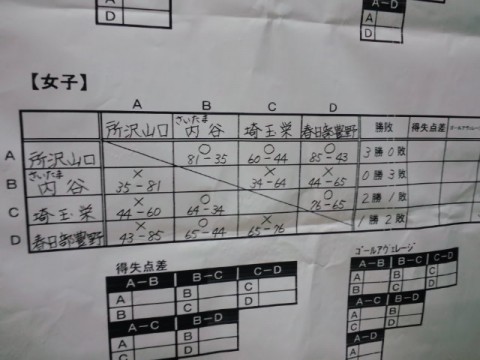 A－D
A
D
A
D
【女子】
A B C D
所沢山口 さいたま内谷 埼玉栄 春日部豊野 勝敗 得失点差 ゴールアヴェレージ
A 所沢山口 ○ 81－35 ○ 60－44 ○ 85－43 3勝0敗
B さいたま内谷 × 35－81 × 34－64 × 44－65 0勝3敗
C 埼玉栄 × 44－60 ○ 64－34 ○ 76－65 2勝1敗
D 春日部豊野 × 43－85 ○ 65－44 × 65－76 1勝2敗
得失点差
A－B B－C C－D
A B C
B C D
A－C B－D
A B
C D
ゴールアヴェレージ
A－B B－C C－D
A B C
B C D
A－C B－D
A B
C D
A－D
A